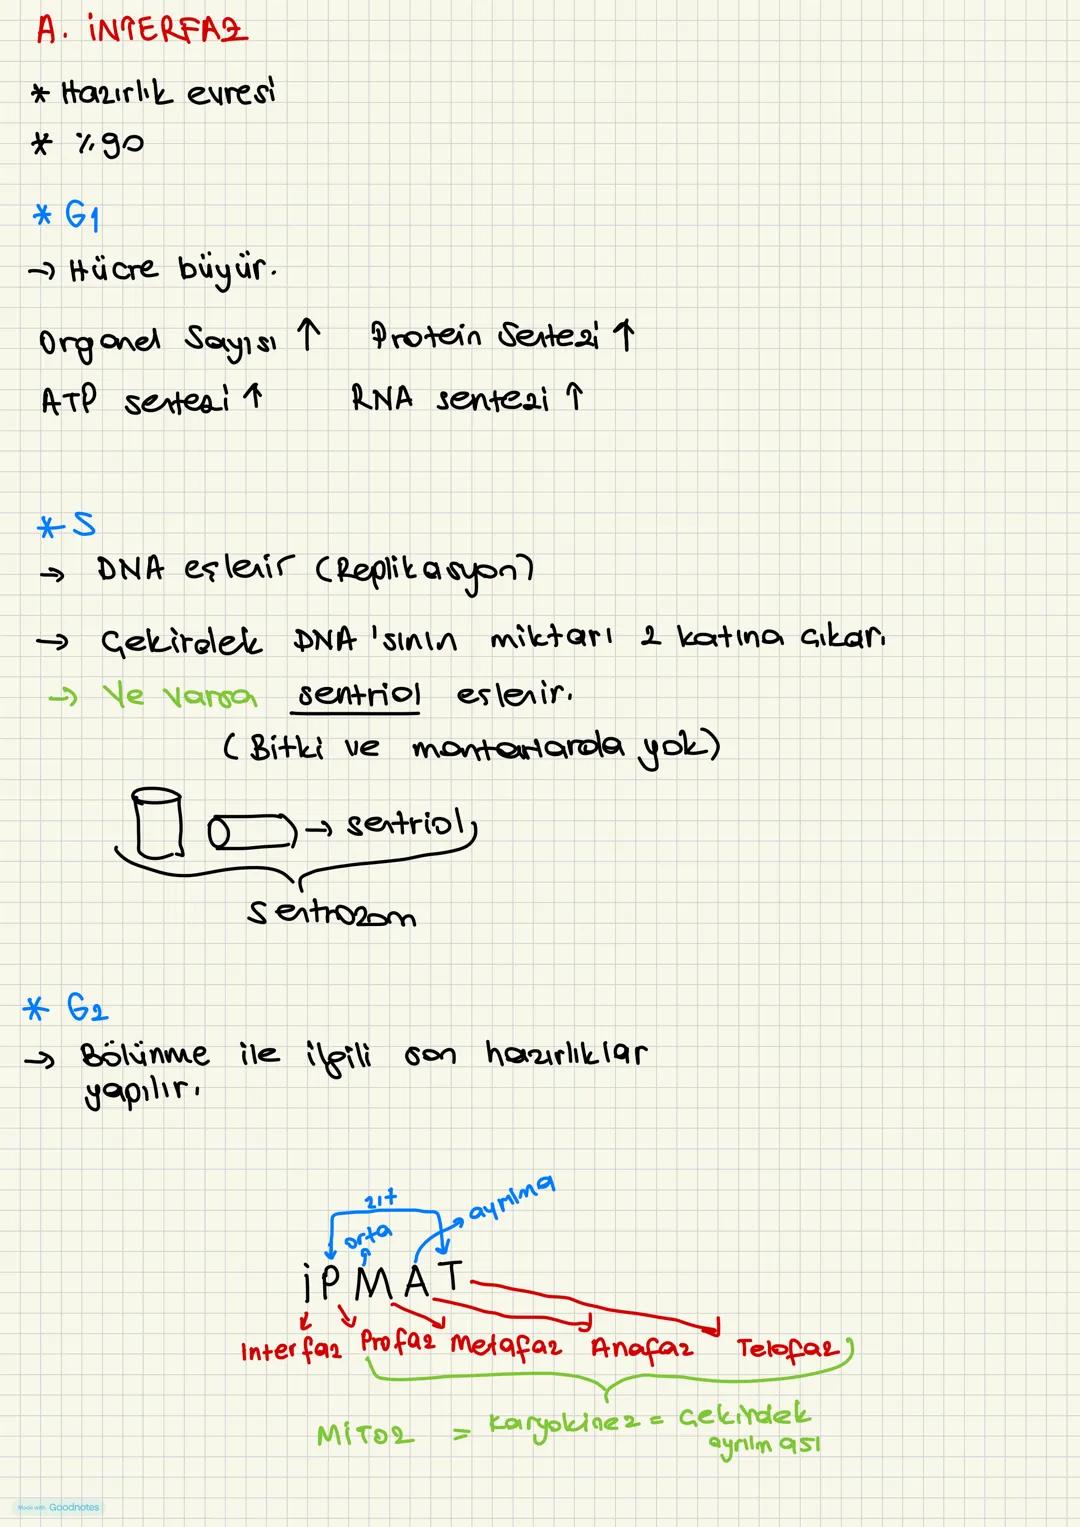 A. İNTERFAZ
* Hazırlık evresi
* %90
* G1
→ Hücre büyür.
Organel Sayısı ↑ Protein Sentezi ↑
ATP sentezi ↑ RNA sentezi ↑
* S
→ DNA eşlenir (Replikasyon)
→ Çekirdek DNA'sının miktarı 2 katına çıkar.
→ Ve varsa sentriol eşlenir.
(Bitki ve mantarlarda yok)
→ sentriol
Sentrozom
* G2
→ Bölünme ile ilgili son hazırlıklar
yapılır.
zıt
orta
ayrılma
İPMAT
İnterfaz Profaz Metafaz Anafaz Telofaz
MİTOZ = Karyokinez = Çekirdek
ayrılması
Made with Goodnotes